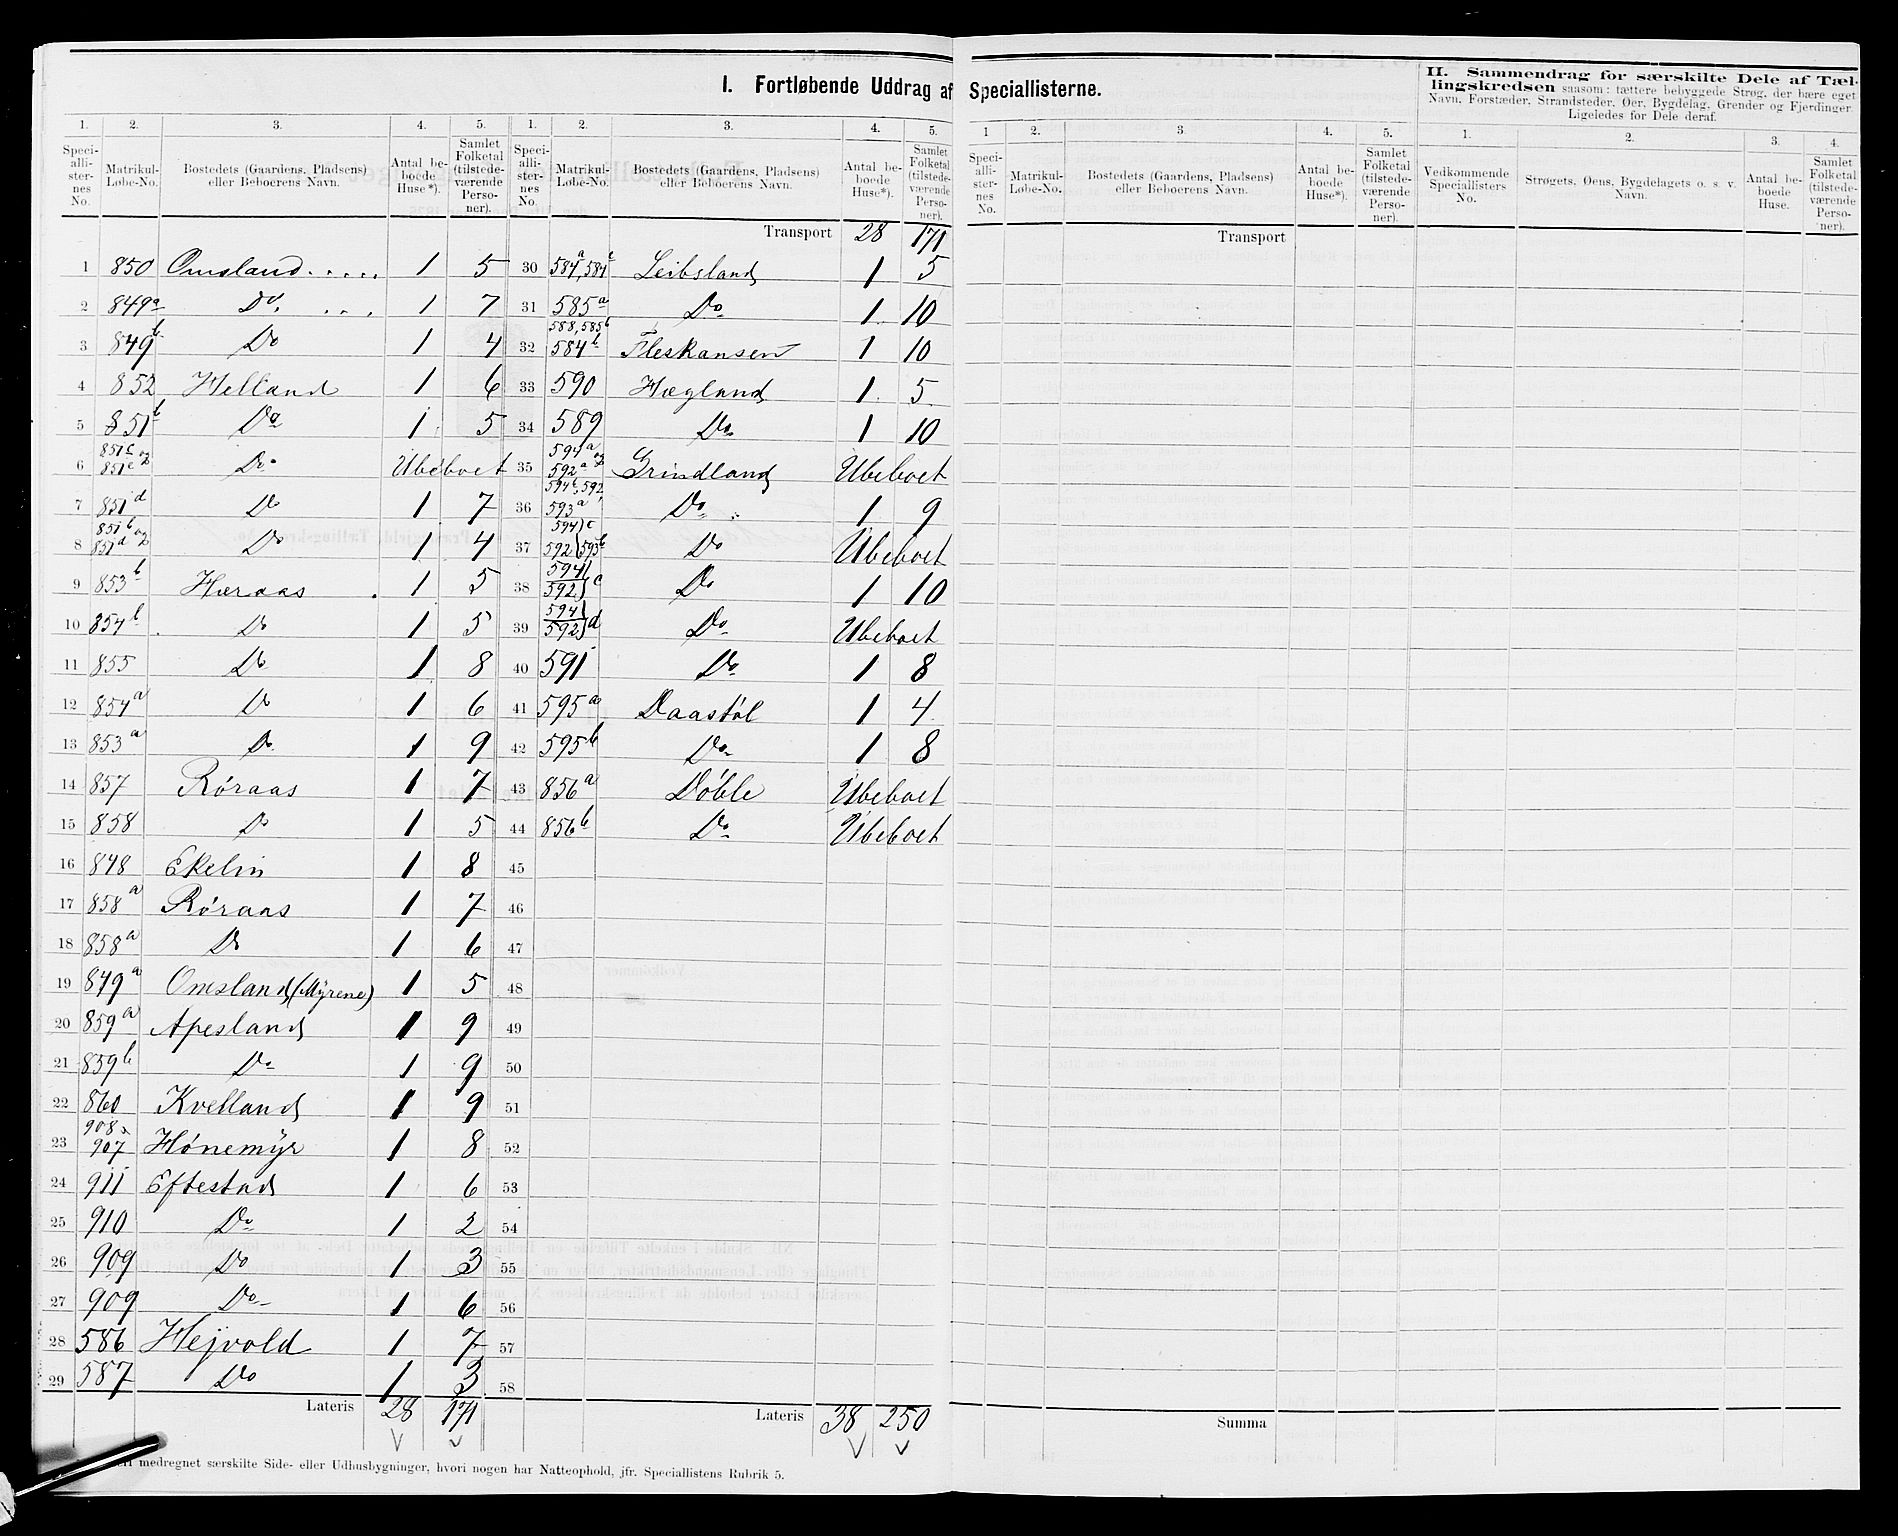 I. Fortløbende Uddrag af Speciallisterne.
II. Sammendrag for særskilte Dele af Tæl-
lingskredsen saasom: tættere bebyggede Strøg, der bære eget
Navn, Forstæder, Strandsteder, Øer, Bygdelag, Grender og Fjerdinger.
Ligeledes for Dele deraf.
1. 2. 3. 4. 5. 1. 2. 3. 4. 5. 1 2. 3. 4. 5. 1. 2. 3. 4.
Speci-alli-ster-nes No. Matrikul-Løbe-No. Bostedets (Gaardens, Pladsens) eller Beboerens Navn. Antal be-boede Huse*). Samlet Folketal (tilstede-værende Perso-ner).
Speci-alli-ster-nes No. Matrikul-Løbe-No. Bostedets (Gaardens, Pladsens) eller Beboerens Navn. Antal be-boede Huse*). Samlet Folketal (tilstede-værende Perso-ner).
Speci-alli-ster-nes No. Matrikul-Løbe-No. Bostedets (Gaardens, Pladsens) eller Beboerens Navn. Antal be-boede Huse*). Samlet Folketal (tilstede-værende Perso-ner).
Vedkommende Speciallisters No. Strøgets, Øens, Bygdelagets o. s. v. Navn. Antal be-boede Huse. Samlet Folketal (tilstede-værende Perso-ner).
1 850 Omsland..... 1 5
2 849a Do. ... 1 7
3 849b Do 1 4
4 852 Helland 1 6
5 851b Do 1 5
6 851c og 851e Do Ubeboet
7 851d Do 1 7
8 851b og 851d Do 1 4
9 853b Hæraas 1 5
10 854b Do 1 5
11 855 Do 1 8
12 854a Do 1 6
13 853a Do 1 9
14 857 Røraas 1 7
15 858 Do 1 5
16 848 Ekelin 1 8
17 858a Røraas 1 7
18 858a Do 1 6
19 849a Omsland (Myrene) 1 5
20 859a Apesland 1 9
21 859b Do 1 9
22 860 Kvelland 1 9
23 908 907 Hønemyr 1 8
24 911 Eftestad 1 6
25 910 Do 1 2
26 909 Do 1 3
27 909 Do 1 6
28 586 Hejvold 1 7
29 587 Do 1 3
Lateris 28 171
Transport 28 171
30 584a, 584c Leibsland 1 5
31 585a Do 1 10
32 588, 585b 584b Fleskansen 1 10
33 590 Hægland 1 5
34 589 Do 1 10
35 594a og 592a Grindland Ubeboet
36 594b, 592 593a Do 1 9
37 594)c 592 593b Do Ubeboet
38 594 592 c Do 1 10
39 594 592 d Do Ubeboet
40 591 Do 1 8
41 595a Daastøl 1 4
42 595b Do 1 8
43 856a Døble Ubeboet
44 856b Do Ubeboet
45
46
47
48
49
50
51
52
53
54
55
56
57
58
Lateris 38 250
Transport
Summa
medregnet særskilte Side- eller Udhusbygninger, hvori nogen har Natteophold, jfr. Speciallistens Rubrik 5.